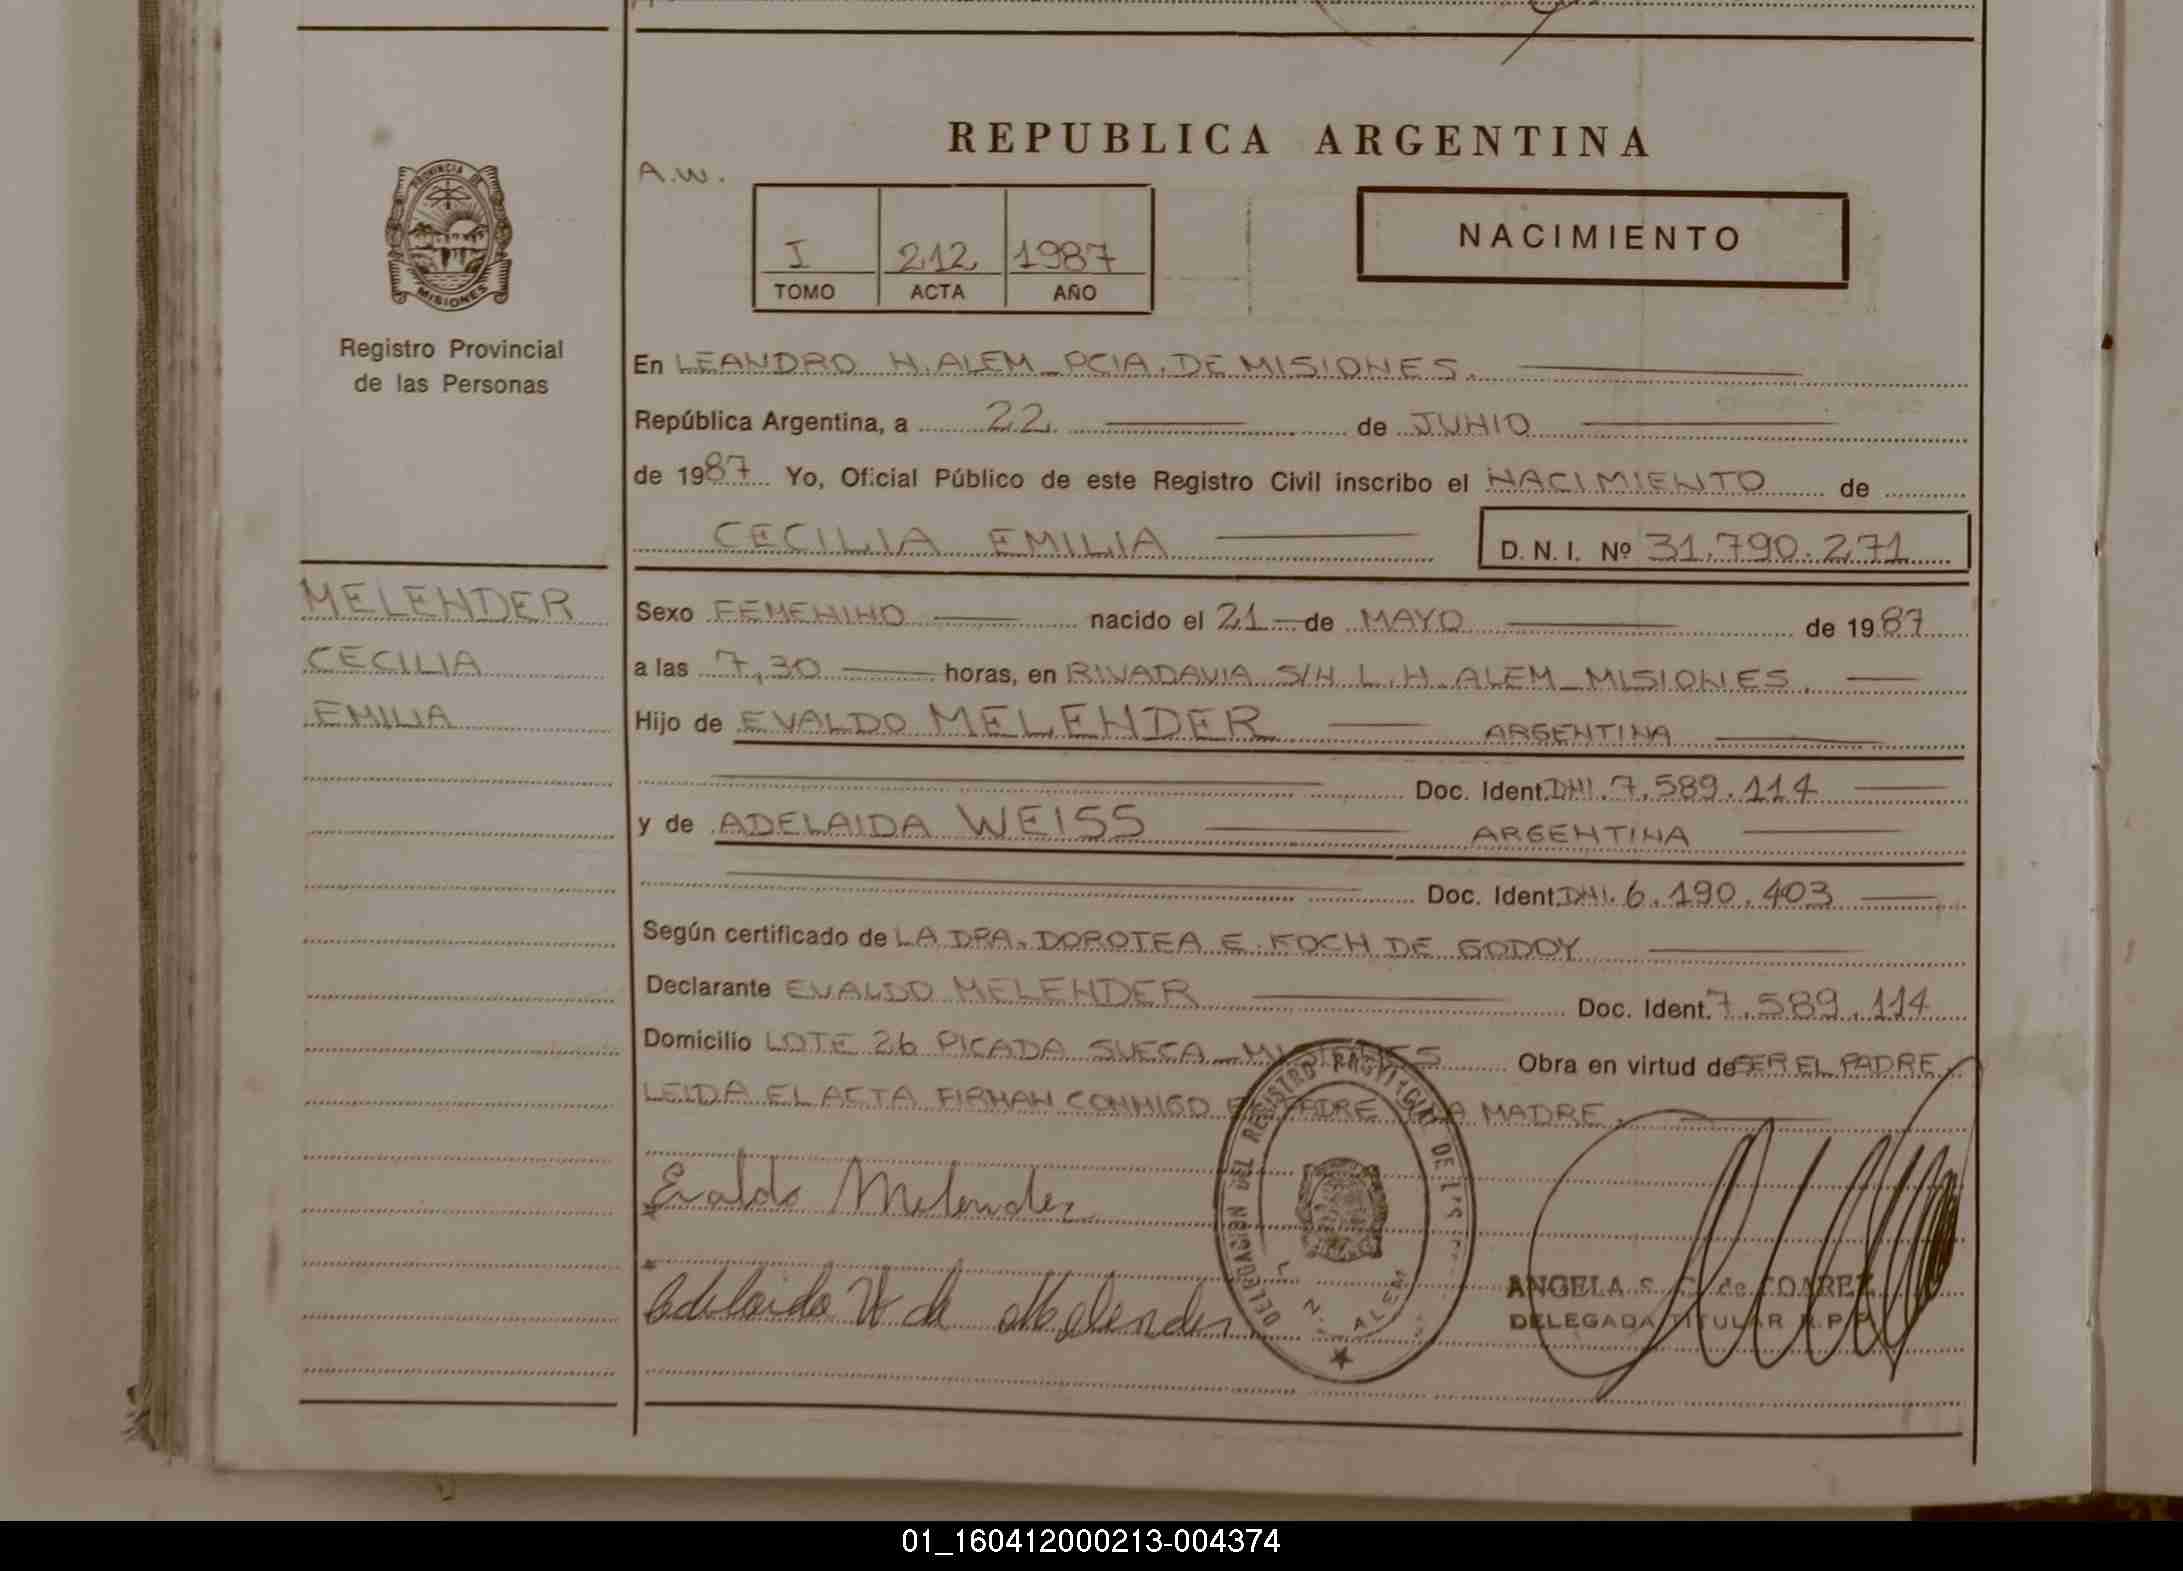 REPUBLICA ARGENTINA
A.W.
I 212 1987
TOMO ACTA AÑO
NACIMIENTO
PROVINCIA DE
MISIONES
Registro Provincial
de las Personas
En LEANDRO N. ALEM - PCIA. DE MISIONES.
República Argentina, a 22 de JUNIO
de 1987 Yo, Oficial Público de este Registro Civil inscribo el NACIMIENTO de
CECILIA EMILIA D.N.I. Nº 31.790.271
MELENDER
CECILIA
EMILIA
Sexo FEMENINO nacido el 21 de MAYO de 1987
a las 7,30 horas, en RIVADAVIA S/N L.N. ALEM - MISIONES.
Hijo de EVALDO MELENDER ARGENTINA
Doc. Ident. DNI. 7.589.114
y de ADELAIDA WEISS ARGENTINA
Doc. Ident. DNI. 6.190.403
Según certificado de LA DRA. DOROTEA E. KOCH DE GODOY
Declarante EVALDO MELENDER Doc. Ident. 7.589.114
Domicilio LOTE 26 PICADA SUECA - MISIONES Obra en virtud de SER EL PADRE
LEIDA EL ACTA FIRMAN CONMIGO EL PADRE Y LA MADRE.
Evaldo Melender
Adelaida W de Melender
DELEGACION DEL REGISTRO PROVINCIAL DE LAS
L. N. ALEM
ANGELA S. C. de SOAREZ
DELEGADA TITULAR R.P.P.
01_160412000213-004374